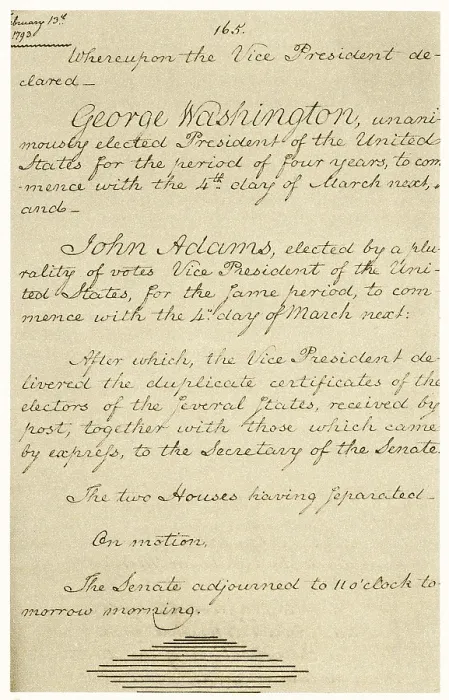 February 13th
1793
165.
Whereupon the Vice President de-
clared_
George Washington, unani-
mously elected President of the United
States for the period of four years, to com-
mence with the 4th day of March next,
and_
John Adams, elected by a plu-
rality of votes Vice President of the Uni-
ted States, for the same period, to com
mence with the 4th day of March next:
After which, the Vice President de-
livered the duplicate certificates of the
electors of the several States, received by
post, together with those which came
by express, to the Secretary of the Senate.
The two Houses having separated_
On motion,
The Senate adjourned to 11 o'clock to-
morrow morning.